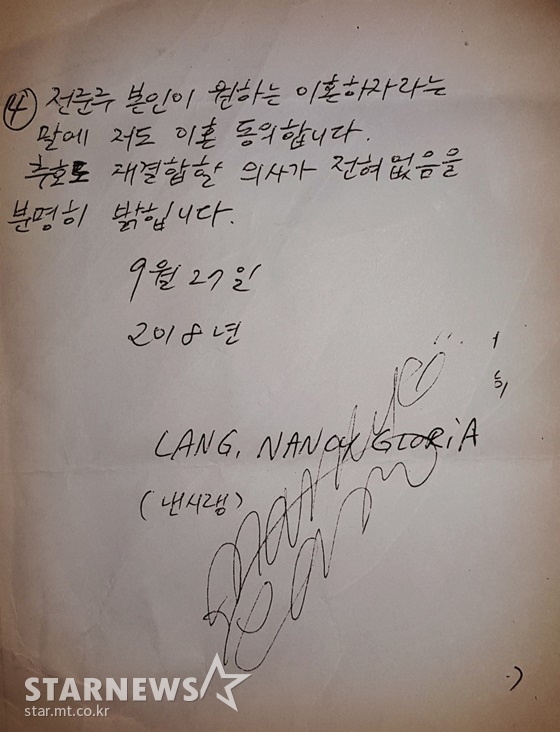 ④ 전준주 본인이 원하는 이혼하자라는
말에 저도 이혼 동의합니다.
추호도 재결합할 의사가 전혀없음을
분명히 밝힙니다.
9월 27일
2018년
LANG, NANCY GLORiA
(낸시랭)
STARNEWS
star.mt.co.kr